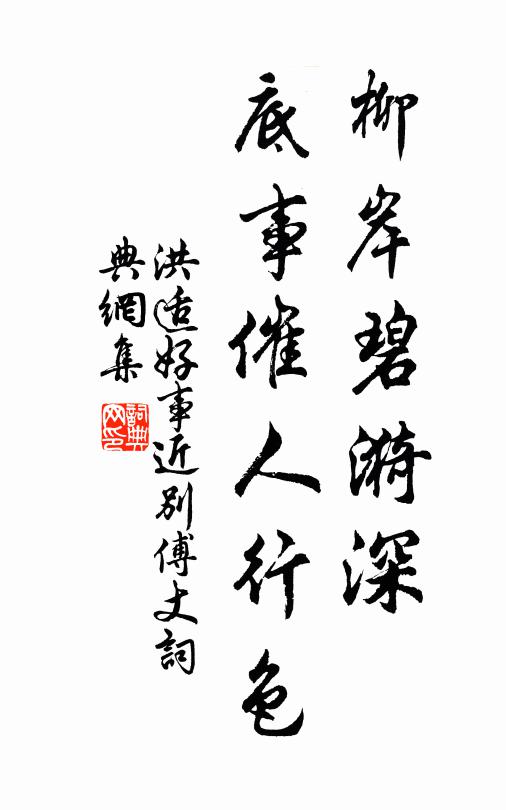 柳岸碧漪深
底事催人行色
洪适好事近別傅丈詞
典網集
詞典
网印